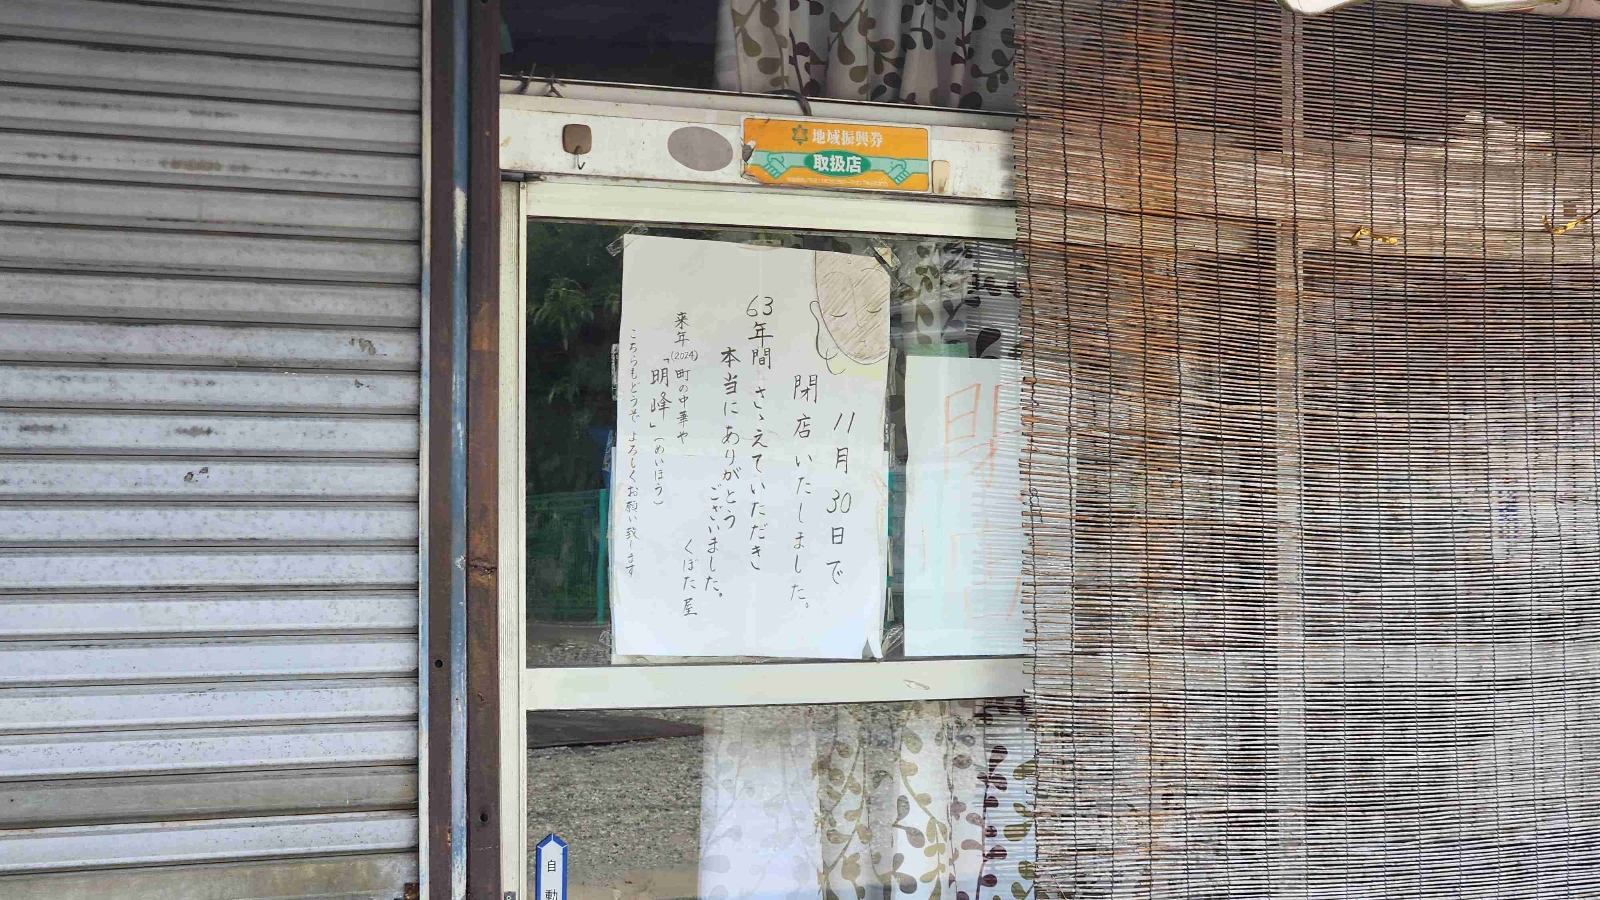 地域振興券
取扱店
11月30日で
閉店いたしました。
63年間さゝえていただき
本当にありがとう
ございました。
くぼた屋
来年(2024)町の中華や
「明峰」(めいほう)
こちらもどうぞよろしくお願い致します
自動